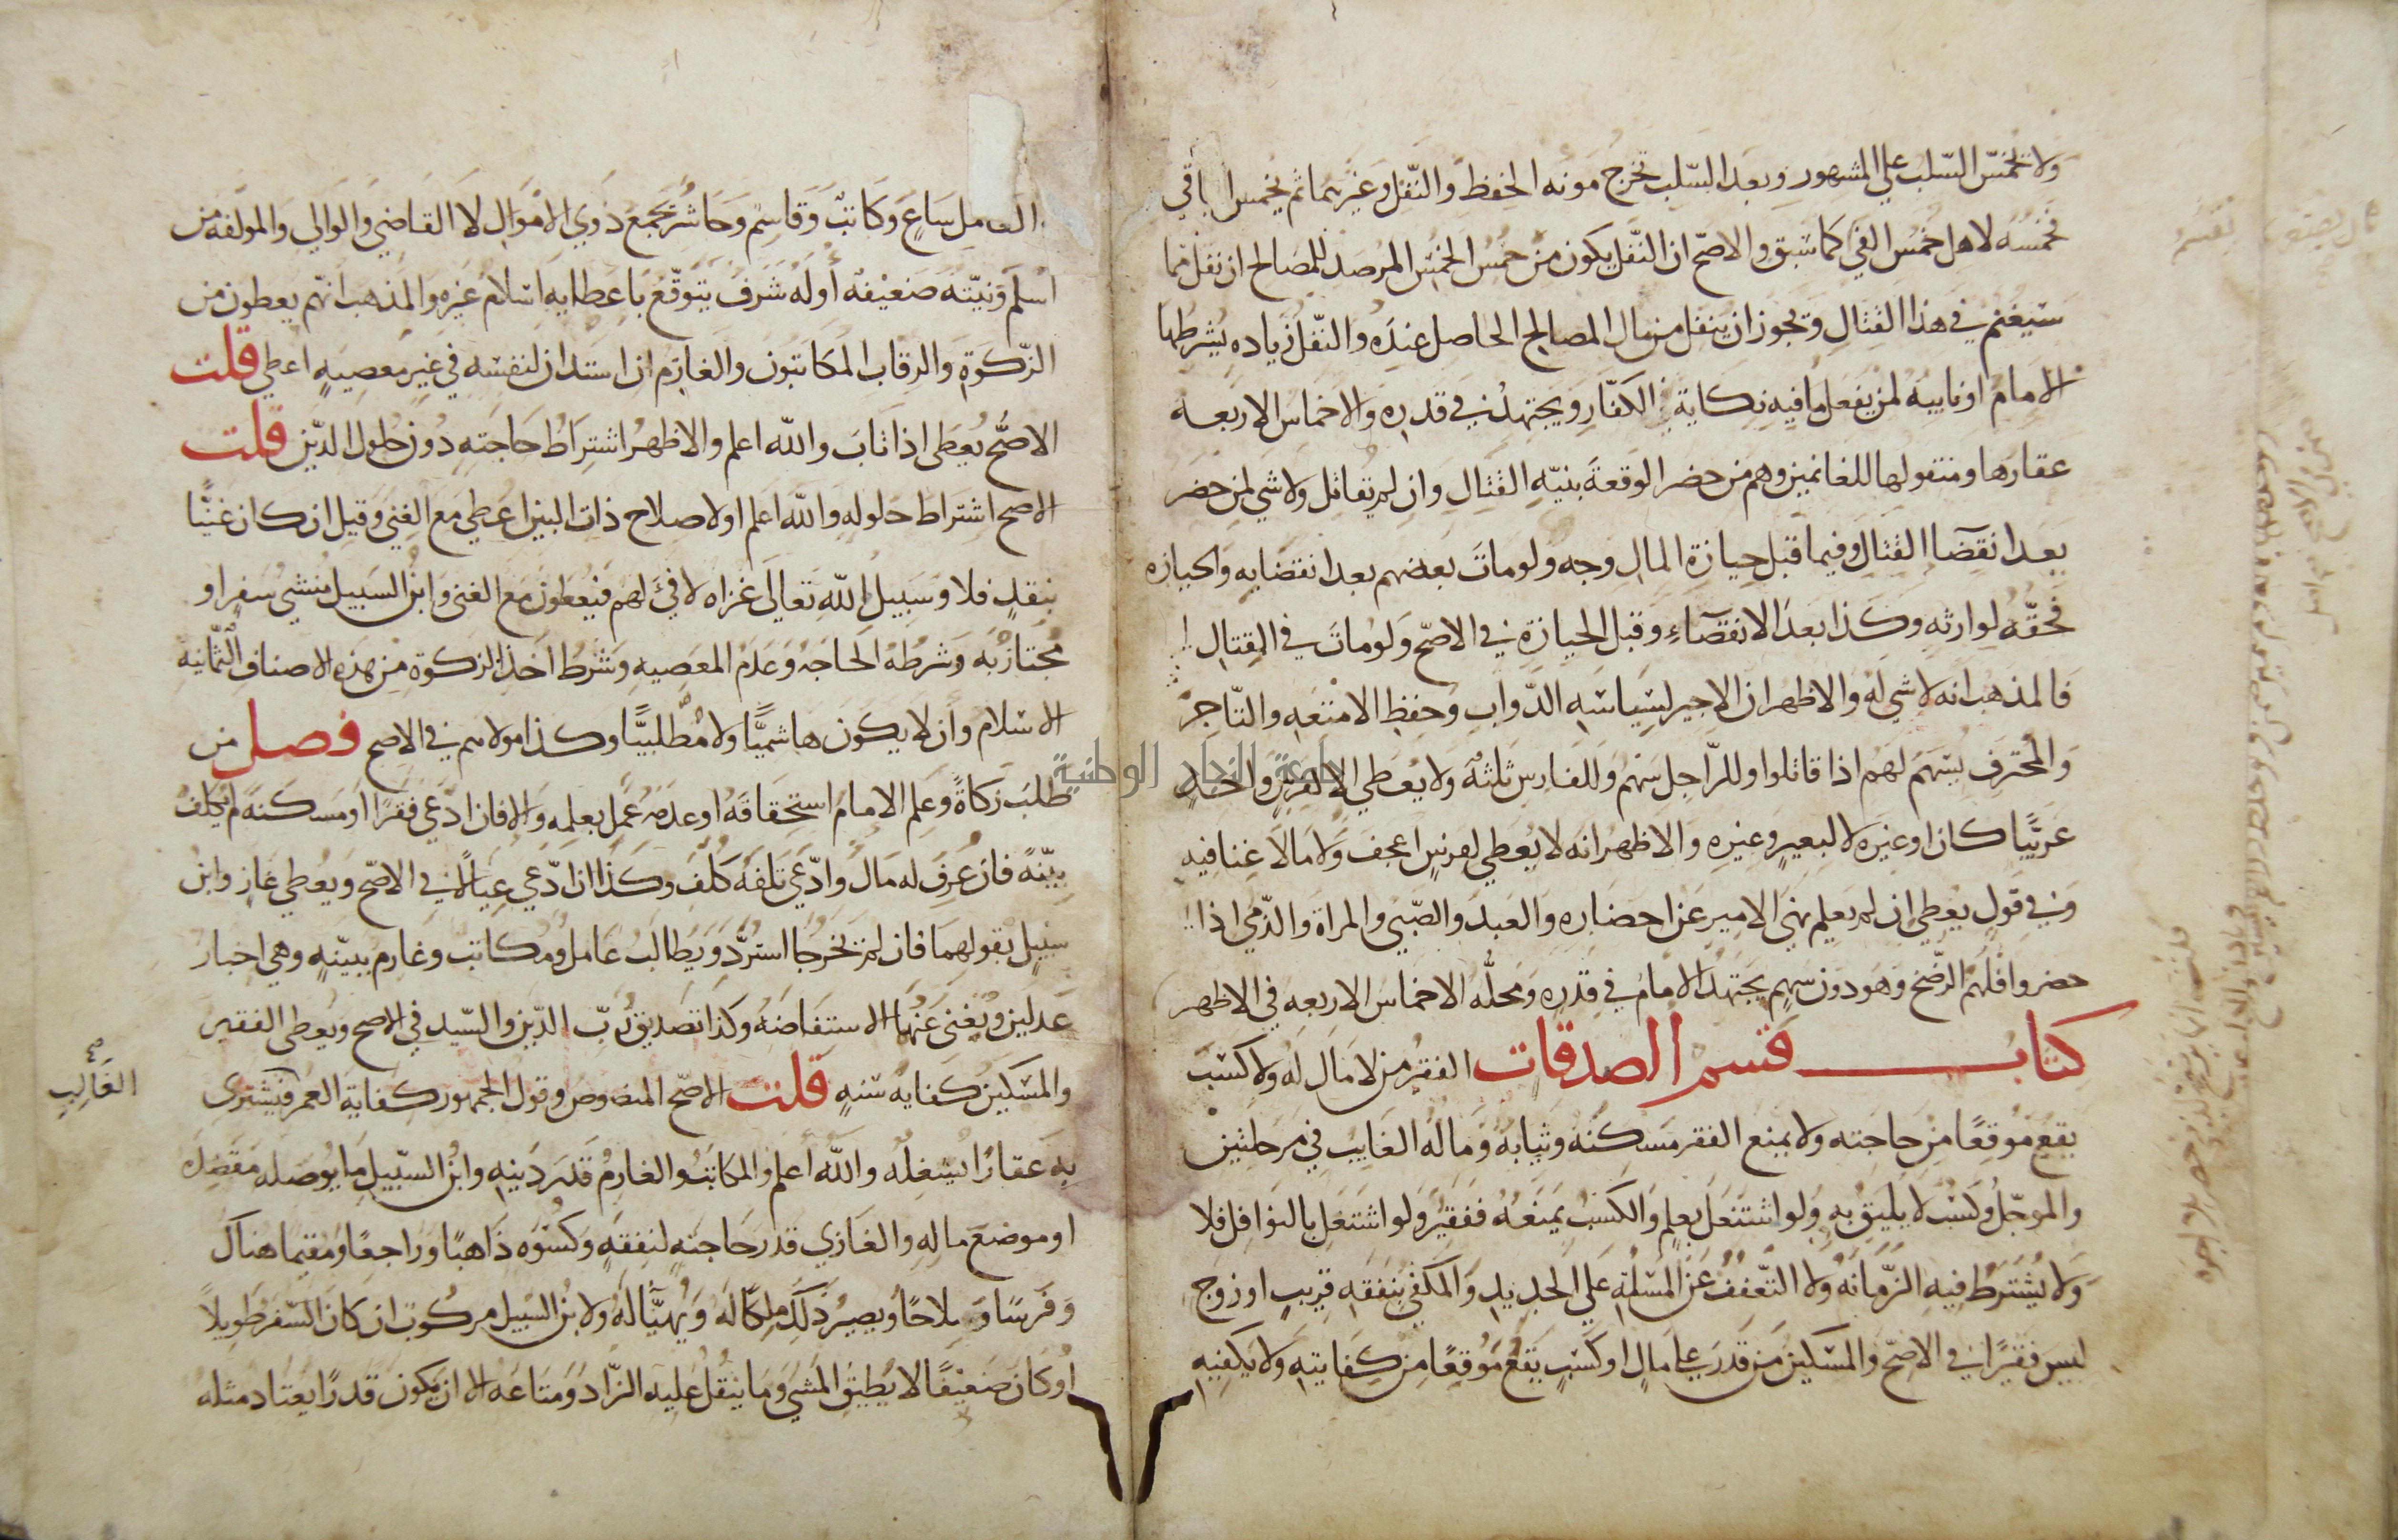 ولا تخمس السلب علي المشهور وبعد السلب تخرج مونه الحفظ والنقل وغيرهما ثم يخمس الباقي
فخمسه لاهل خمس الفي كما سبق والاصح ان النفل يكون من خمس الخمس المرصد للمصالح ان نفل مما
سيغنم في هذا القتال ويجوز ان ينفل من مال المصالح الحاصل عنده والنفل زياده يشرطها
الامام او نايبه لمن يفعل ما فيه نكاية في الكفار ويجتهد في قدره والاخماس الاربعه
عقارها ومنقولها للغانمين وهم من حضر الوقعة بنيه القتال وان لم يقاتل ولا شي لمن حضر
بعد انقضا القتال وفيما قبل حيازة المال وجه ولو مات بعضهم بعد انقضايه والحيازه
فحقه لوارثه وكذا بعد الانقضاء وقبل الحيازة في الاصح ولو مات في القتال
فالمذهب انه لا شي له والاظهر ان الاجير لسياسه الدواب وحفظ الامتعه والتاجر
والمحترف يسهم لهم اذا قاتلوا وللراجل سهم وللفارس ثلثة ولا يعطي الا لفرس واحد
عربيا كان او غيره لا لبعير وغيره والاظهر انه لا يعطي لفرس اعجف ولا ما لا غنا فيه
وفي قول يعطي ان لم يعلم نهي الامير عن احضاره والعبد والصبي والمراة والذمي اذا
حضروا فلهم الرضخ وهو دون سهم يجتهد الامام في قدره ومحله الاخماس الاربعه في الاظهر
كتاب قسم الصدقات الفقير من لا مال له ولا كسب
يقع موقعا من حاجته ولا يمنع الفقر مسكنه وثيابه وماله الغايب في مرحلتين
والموجل وكسب لا يليق به ولو اشتغل بعلم والكسب يمنعه ففقير ولو اشتغل بالنوافل فلا
ولا يشترط فيه الزمانة ولا التعفف عن المسلة علي الجديد والمكفي بنفقه قريب او زوج
ليس فقيرا في الاصح والمسكين من قدر علي مال او كسب يقع موقعا من كفايته ولا يكفيه
العامل ساع وكاتب وقاسم وحاشر يجمع ذوي الاموال لا القاضي والوالي والمولفه من
اسلم ونيته ضعيفه او له شرف يتوقع باعطايه اسلام غيره والمذهب انهم يعطون من
الزكوة والرقاب المكاتبون والغارم ان استدان لنفسه في غير معصيه اعطي قلت
الاصح يعطى اذا تاب والله اعلم والاظهر اشتراط حاجته دون حلول الدين قلت
الاصح اشتراط حلوله والله اعلم او لاصلاح ذات البين اعطي مع الغني وقيل ان كان غنيا
بنقد فلا وسبيل الله تعالى غزاه لا فئ لهم فيعطون مع الغنى وابن السبيل منشي سفر او
مجتاز به وشرطه الحاجه وعدم المعصيه وشرط اخذ الزكوة من هذه الاصناف الثمانيه
الاسلام وان لا يكون هاشميا ولا مطلبيا وكذا مولاهم في الاصح فصل من
طلب زكاة وعلم الامام استحقاقه او عدمه عمل بعلمه والا فان ادعي فقرا او مسكنة لم يكلف
بينة فان عرف له مال وادعي تلفه كلف وكذا ان ادعي عيالا في الاصح ويعطي غاز وابن
سبيل بقولهما فان لم يخرجا استرد ويطالب عامل ومكاتب وغارم ببينه وهي اخبار
عدلين ويغني عنها الاستفاضه وكذا تصديق رب الدين والسيد في الاصح ويعطى الفقير
والمسكين كفايه سنه قلت الاصح المنصوص وقول الجمهور كفاية العمر فيشترى
الغالب
به عقارا يستغله والله اعلم والمكاتب والغارم قدر دينه وابن السبيل ما يوصله مقصده
او موضع ماله والغازي قدر حاجته لنفقه وكسوه ذاهبا وراجعا ومقيما هناك
وفرسا وسلاحا ويصير ذلك ملكا له ويهيا له ولابن السبيل مركوب ان كان السفر طويلا
او كان ضعيفا لا يطيق المشي وما ينقل عليه الزاد ومتاعه الا ان يكون قدرا يعتاد مثله
جامعة النجاح الوطنية